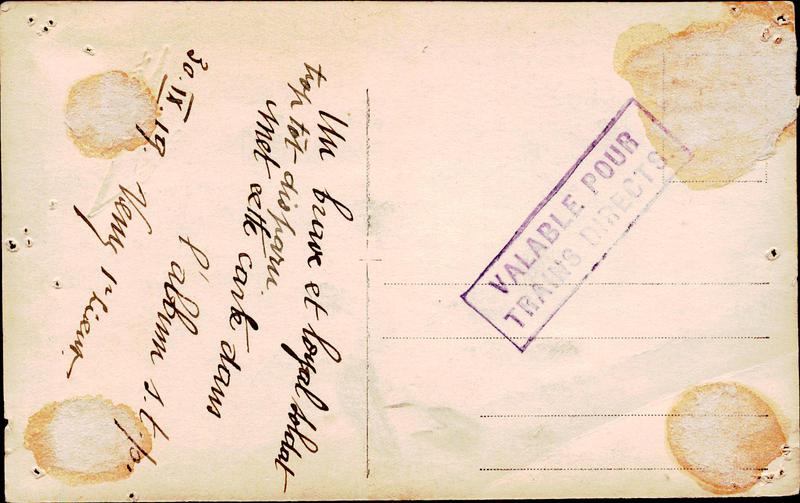 Un brave et loyal soldat
trop tôt disparu.
Met cette carte dans
l'album s.t.p.
Remy 1r Lieut.
30.IX.19.
VALABLE POUR
TRAINS DIRECTS